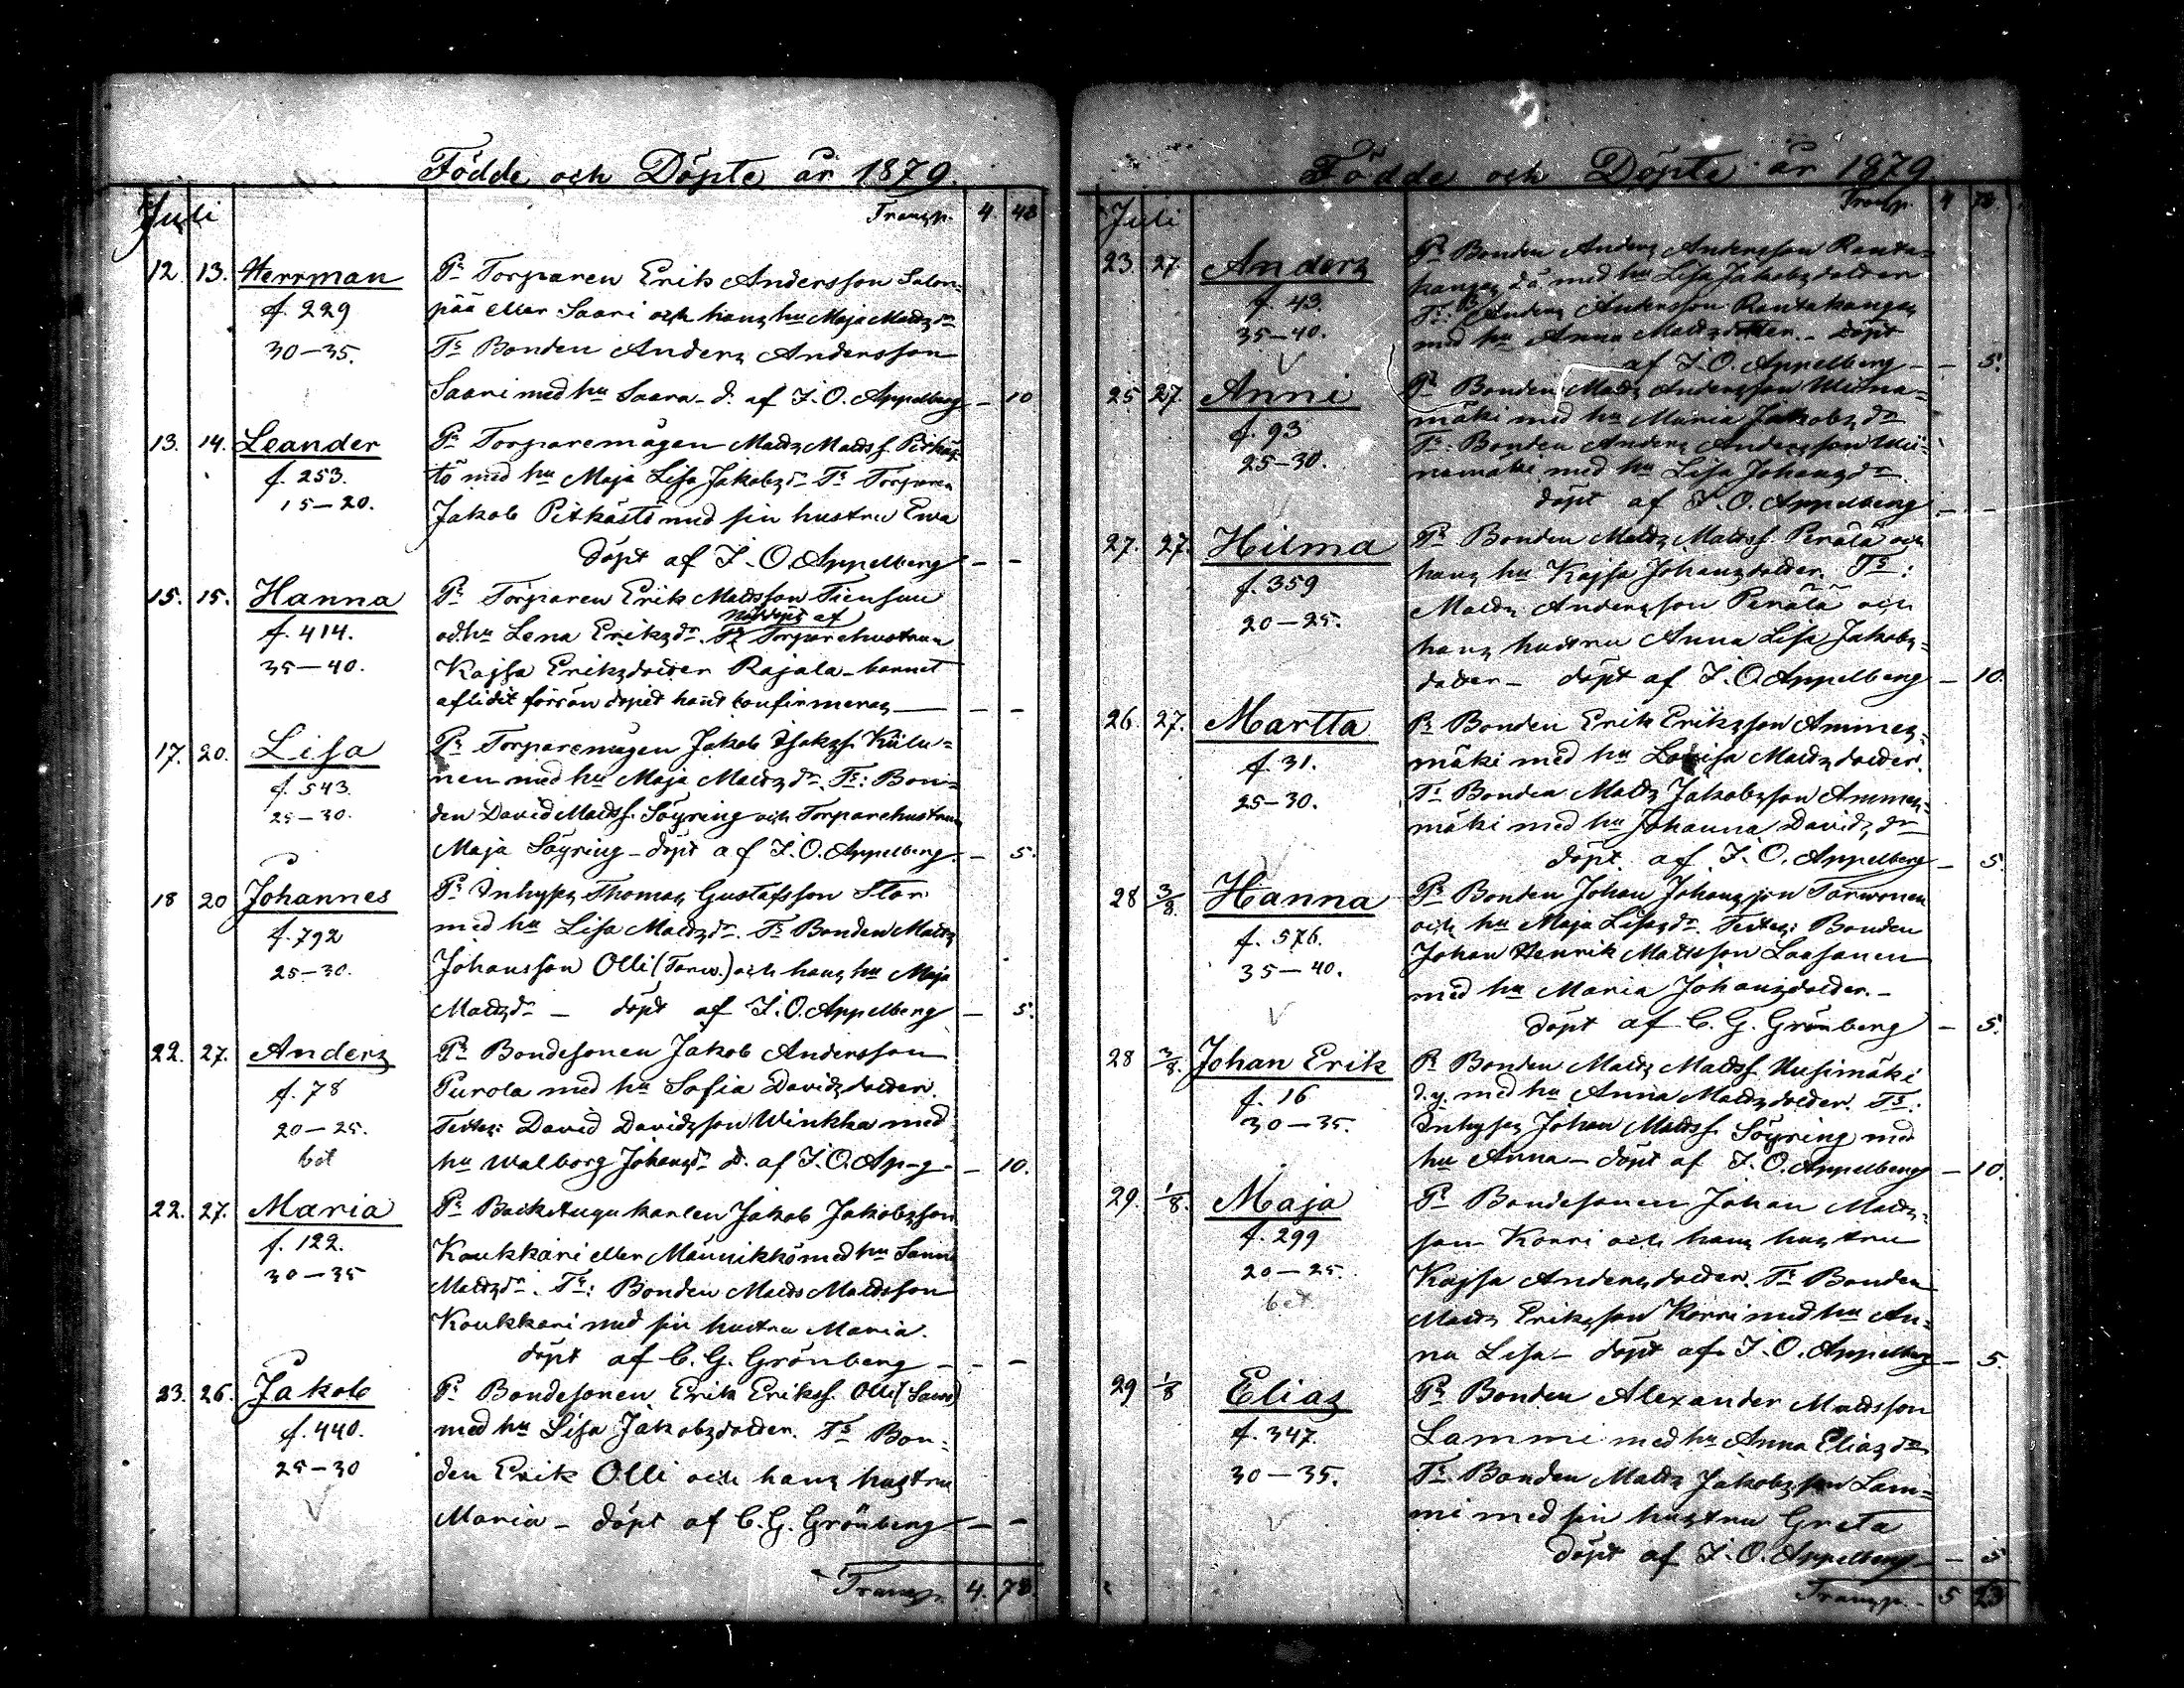 Födde och Döpte år 1879.
Juli
Transp. 4. 48
12. 13. Herrman Pr Torparen Erik Andersson Salon-
f. 229 pää eller Saari och hans hu Maja Matts dr
30-35. Ts Bonden Anders Andersson
Saari med hu Saara - d. af I. O. Appelberg - 10
13. 14. Leander Pr Torparemågen Matts Matts f. Pitkäs-
f. 253. tö med hu Maja Lisa Jakobs dr Ts Torparen
15-20. Jakob Pitkästö med sin hustru Ewa
döpt af I. O. Appelberg - -
15. 15. Hanna Pr Torparen Erik Mattsson Tiensuu
nöddöpt af
f. 414. och hu Lena Eriks dr. Torparehustrun
35-40. Kajsa Eriksdotter Rajala - barnet
aflidit förrän dopet hant confirmeras - -
17. 20. Lisa Pr Torparemågen Jakob Isaks f. Kulu-
f. 543. nen med hu Maja Matts dr. Ts: Bon-
25-30. den David Matts f. Söyring och Torparehustrun
Maja Söyring - döpt af I. O. Appelberg - 5.
18 20 Johannes Pr Inhyses Thomas Gustafsson Stor
f. 792 med hu Lisa Matts dr. Ts Bonden Matts
25-30. Johansson Olli (Tarw.) och hans hu Maja
Matts dr - döpt af I. O. Appelberg - 5.
22. 27. Anders Pr Bondesonen Jakob Andersson
f. 78 Purola med hu Sofia Davidsdotter.
20-25. Testes: David Davidsson Winkka med
bet hu Walborg Johans dr D. af I. O. Ap-g - 10.
22. 27. Maria Pr Backstugukarlen Jakob Jakobsson
f. 122. Koukkari eller Männikkö med hu Sanna
30-35 Matts dr. Ts: Bonden Matts Mattsson
Koukkari med sin hustru Maria.
döpt af C. G. Grönberg - -
23. 26. Jakob Pr Bondesonen Erik Eriks f. Olli (Saws)
f. 440. med hu Lisa Jakobsdotter. Ts Bon-
25-30 den Erik Olli och hans hustru
Maria - döpt af C. G. Grönberg - -
Transp. 4. 78.
Födde och Döpte år 1879
Juli
Transp. 4 78.
23. 27. Anders Pr Bonden Anders Andersson Ranta-
f. 43. kangas d.ä med hu Lisa Jakobsdotter
Ts: Anders Andersson Rantakangas
35-40. med hu Anna Mattsdotter. - döpt
af I. O. Appelberg - 5.
25 27. Anni Pr Bonden Matts Andersson Wiina-
f. 93 mäki med hu Maria Jakobs dr
Ts: Bonden Anders Andersson Wii-
25-30. namäki med hu Lisa Johans dr
döpt af I. O. Appelberg - -
27. 27. Hilma Pr Bonden Matts Matts f. Perälä och
f. 359 hans hu Kajsa Johansdotter. Ts:
20-25. Matts Andersson Perälä och
hans hustru Anna Lisa Jakobs-
dotter - döpt af I. O. Appelberg - 10.
26. 27. Martta Pr Bonden Erik Eriksson Ammes-
f. 31. mäki med hu Lovisa Mattsdotter.
25-30. Ts Bonden Matts Jakobsson Ammes-
mäki med hu Johanna Davids dr
döpt af I. O. Appelberg - 5.
28 3/8. Hanna Pr Bonden Johan Johansson Tarwonen
f. 576. och hu Maja Lisas dr. Testes: Bonden
35-40. Johan Henrik Mattsson Laasanen
med hu Maria Johansdotter. -
döpt af C. G. Grönberg - 5.
28 3/8. Johan Erik Pr Bonden Matts Matts f. Husimäki
f. 16 d.y. med hu Anna Mattsdotter. Ts:
30-35. Inhyses Johan Matts f. Söyring med
hu Anna - döpt af I. O. Appelberg - 10.
29. 1/8. Maja Pr Bondesonen Johan Matts-
f. 299 son Korri och hans hustru
20-25. Kajsa Andersdotter. Ts Bonden
bet. Matts Eriksson Korri med hu An-
na Lisa - döpt af I. O. Appelberg - 5.
29 1/8 Elias Pr Bonden Alexander Mattsson
f. 347. Lammi med hu Anna Elias dr
30-35. Ts. Bonden Matts Jakobsson Lam-
mi med sin hustru Greta
döpt af I. O. Appelberg - 5
Transp. - 5 23